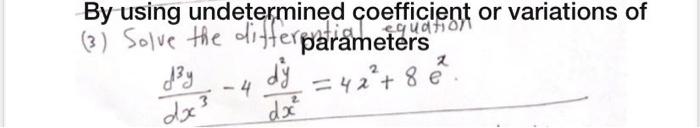 By using undetermined coefficient or variations of
parameters
(3) Solve the differential equation
d³y/dx³ - 4 d²y/dx² = 4x² + 8e^x.